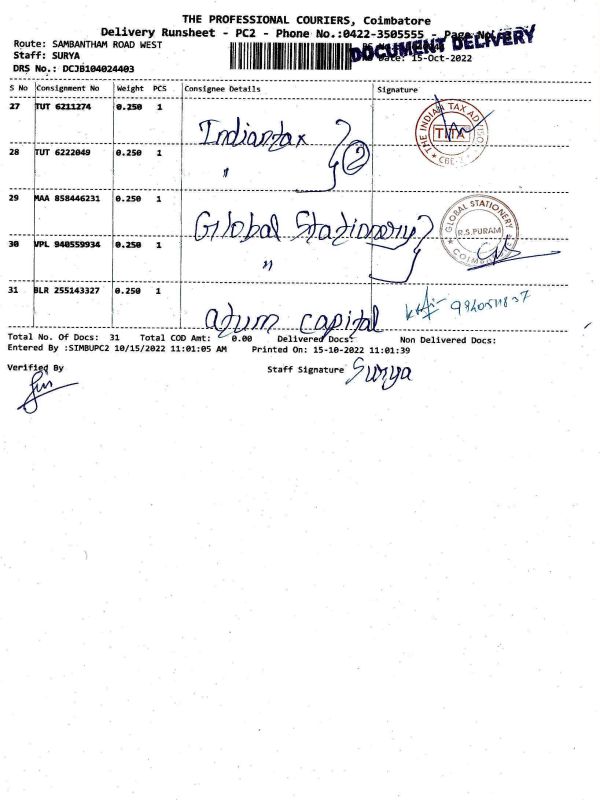 THE PROFESSIONAL COURIERS, Coimbatore
Delivery Runsheet - PC2 - Phone No.:0422-3505555 - Page No
DOCUMENT DELIVERY
Route: SAMBANTHAM ROAD WEST
Staff: SURYA
Date: 15-Oct-2022
DRS No.: DCJB104024403
S No Consignment No Weight PCS Consignee Details Signature
27 TUT 6211274 0.250 1
THE INDIAN TAX ADVISOR
TITA
CBE-2
Indiantax
2
28 TUT 6222049 0.250 1
"
29 MAA 858446231 0.250 1
Global Stationary
GLOBAL STATIONERY
R.S.PURAM
30 VPL 940559934 0.250 1
"
31 BLR 255143327 0.250 1
atum capital
Total No. Of Docs: 31 Total COD Amt: 0.00 Delivered Docs: Non Delivered Docs:
Entered By :SIMBUPC2 10/15/2022 11:01:05 AM Printed On: 15-10-2022 11:01:39
Verified By
Staff Signature Surya